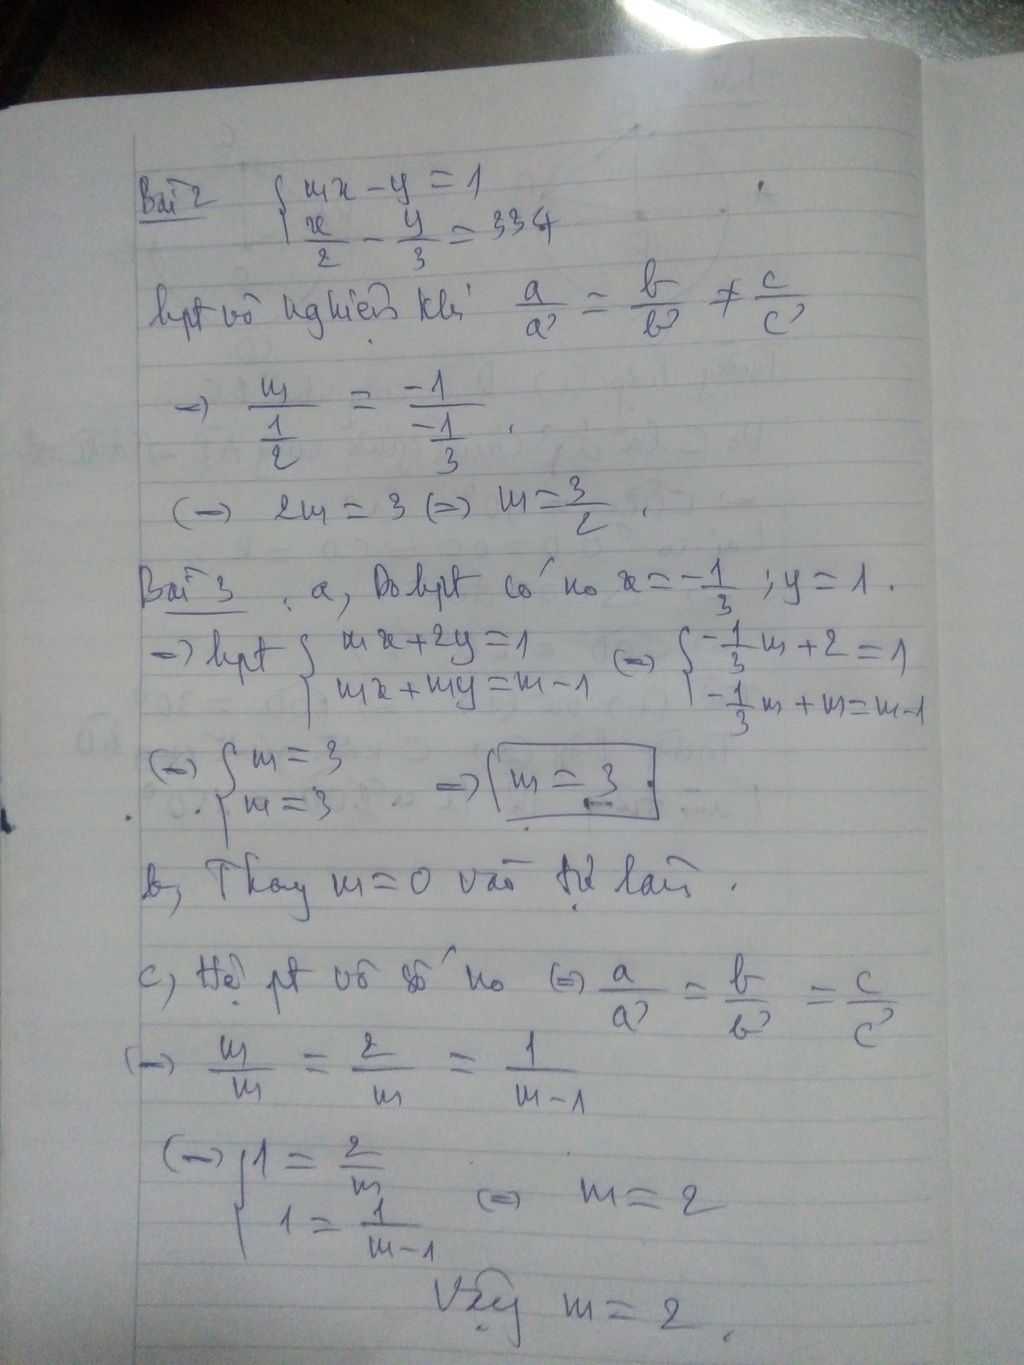 Bài 2 { mx - y = 1
x/2 - y/3 = 334
hpt vô nghiệm khi a/a' = b/b' ≠ c/c'
=> m/(1/2) = -1/(-1/3).
<=> 2m = 3 <=> m = 3/2.
Bài 3. a, Do hpt có no x = -1/3 ; y = 1.
=> hpt { mx + 2y = 1 <=> { -1/3 m + 2 = 1
mx + my = m - 1 -1/3 m + m = m - 1
<=> { m = 3 => m = 3
m = 3
b, Thay m = 0 vào tự làm.
c, Hệ pt vô số no <=> a/a' = b/b' = c/c'
<=> m/m = 2/m = 1/(m-1)
<=> { 1 = 2/m <=> m = 2
1 = 1/(m-1)
Vậy m = 2.